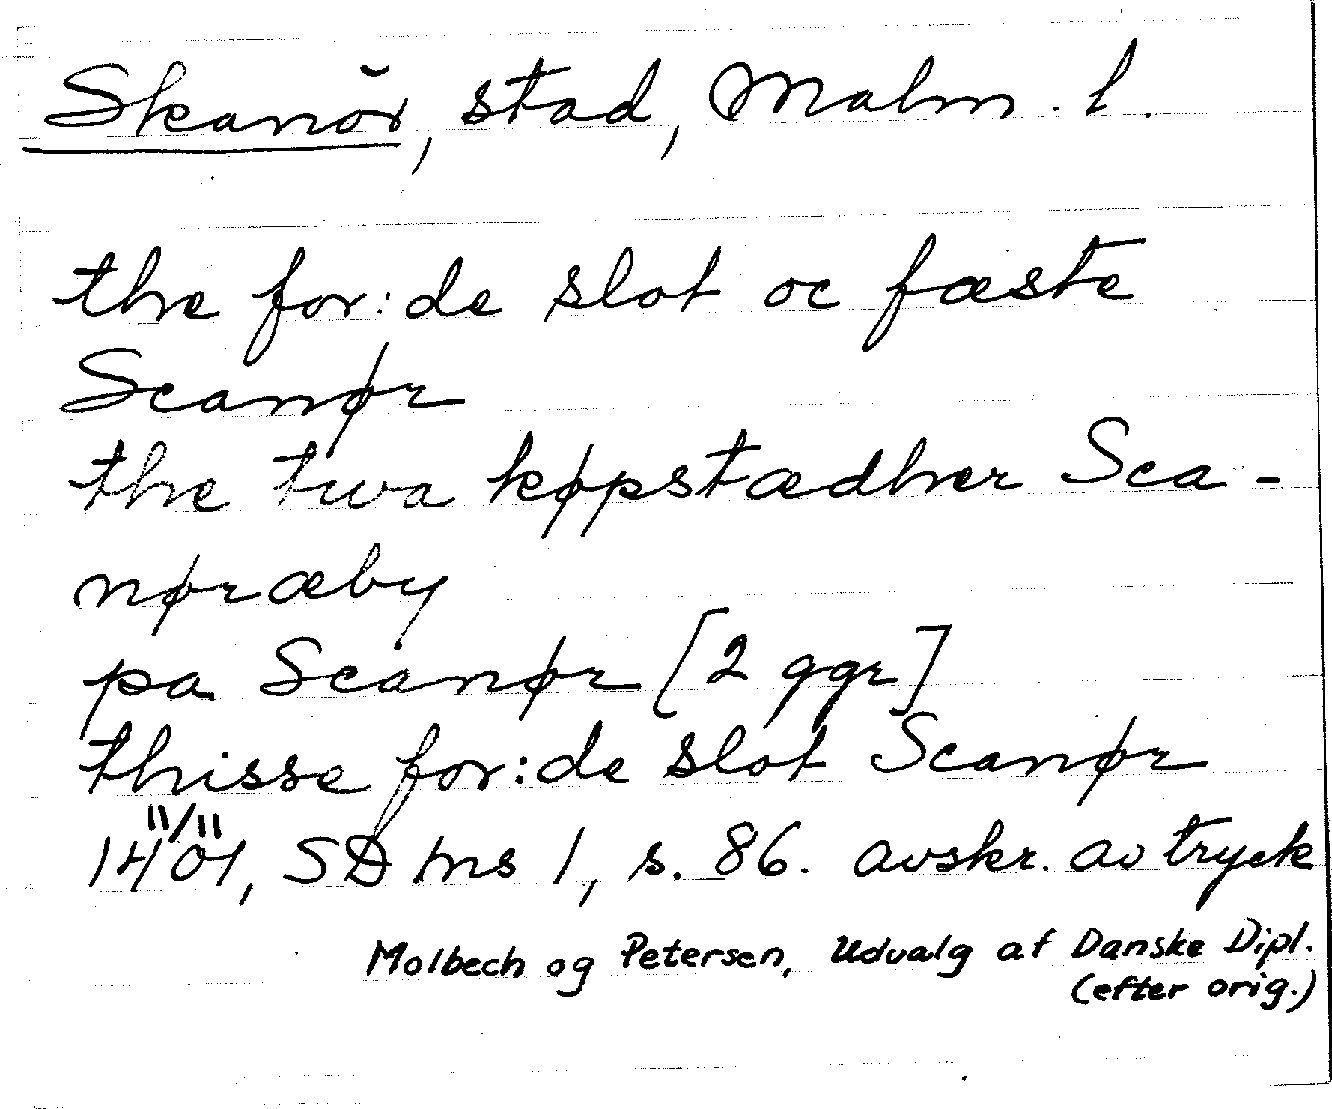 Skanör, stad, Malm. l.
the for:de slot oc fæste
Scanør
the twa køpstædher Sca-
nøræby
pa Scanør [2 ggr]
thisse for:de slot Scanør
11/11
1401, SD ms 1, s. 86. avskr. av tryck
Molbech og Petersen, Udvalg af Danske Dipl.
(efter orig.)